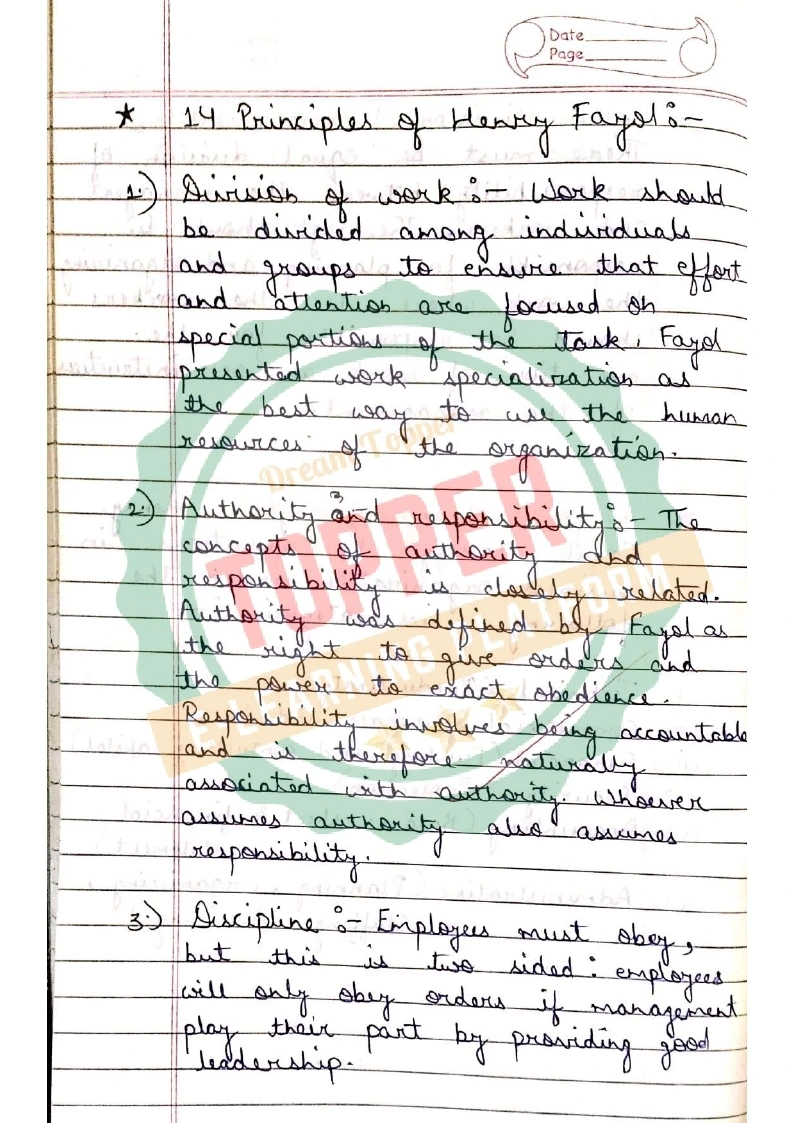 Date
Page
★ 14 Principles of Henry Fayol :-
1.) Division of work :- Work should
be divided among individuals
and groups to ensure that effort
and attention are focused on
special portions of the task. Fayol
presented work specialization as
the best way to use the human
resources of the organization.
2.) Authority and responsibility :- The
concepts of authority and
responsibility is closely related.
Authority was defined by Fayol as
the right to give orders and
the power to exact obedience.
Responsibility involves being accountable
and is therefore naturally
associated with authority. Whoever
assumes authority also assumes
responsibility.
3.) Discipline :- Employees must obey,
but this is two sided : employees
will only obey orders if management
play their part by providing good
leadership.
Dream Topper
TOPPER
E-LEARNING PLATFORM